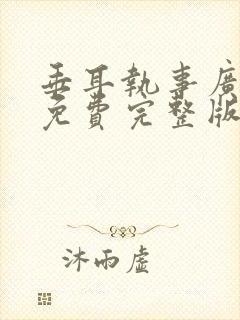 垂耳執事廣
免費完整版
沐雨虛